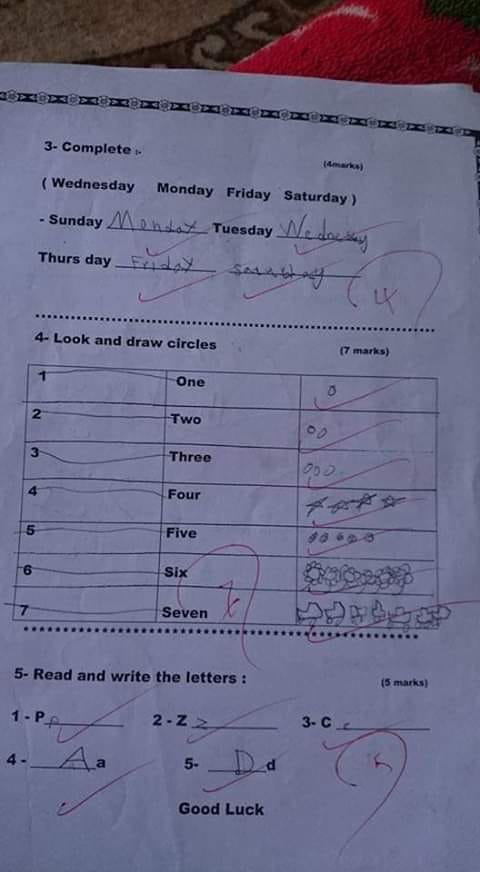 3- Complete :- (4marks)
( Wednesday Monday Friday Saturday )
- Sunday Monday Tuesday Wednesday
Thurs day Friday saturday 4
4- Look and draw circles (7 marks)
1 One
2 Two
3 Three
4 Four
5 Five
6 Six
7 Seven 7
5- Read and write the letters : (5 marks)
1 - P p 2 - Z z 3- C c
4 - A a 5- D d 5
Good Luck